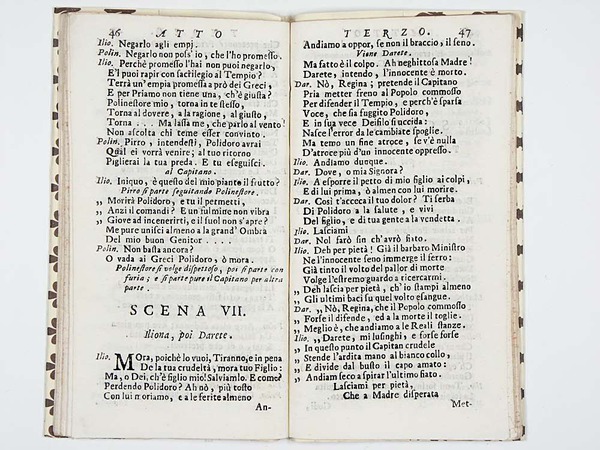 46 ATTO
Ilio. Negarlo agli empj.
Polin. Negarlo non poss'io, che l'ho promesso.
Ilio. Perchè promesso l'hai non puoi negarlo,
E'l puoi rapir con sacrilegio al Tempio?
Terrà un'empia promessa a prò dei Greci,
E per Priamo non tiene una, ch'è giusta?
Polinestore mio, torna in te stesso,
Torna al dovere, a la ragione, al giusto,
Torna . . . Ma lassa me, che parlo al vento!
Non ascolta chi teme esser convinto.
Polin. Pirro, intendesti, Polidoro avrai
Qual ei vorrà venire; al tuo ritorno
Piglierai la tua preda. E tu eseguisci.
al Capitano.
Ilio. Iniquo, è questo del mio pianto il frutto?
Pirro si parte seguitando Polinestore.
„ Morirà Polidoro, e tu il permetti,
„ Anzi il comandi? E un fulmine non vibra
„ Giove ad incenerirti, e il suol non s'apre?
Me pure unisci almeno a la grand' Ombra
Del mio buon Genitor . . . .
Polin. Non basta ancora?
O vada ai Greci Polidoro, ò mora.
Polinestore si volge dispettoso, poi si parte con
furia; e si parte pure il Capitano per altra
parte.
SCENA VII.
Iliona, poi Darete.
Ilio. MOra, poichè lo vuoi, Tiranno, e in pena
De la tua crudeltà, mora tuo Figlio:
Ma, o Dei, ch'è figlio mio! Salviamlo. E come?
Perdendo Polidoro? Ah nò, più tosto
Con lui moriamo, e a le ferite almeno
An-
TERZO. 47
Andiamo a oppor, se non il braccio, il seno.
Viene Darete.
Ma fatto è il colpo. Ah neghittosa Madre!
Darete, intendo, l'innocente è morto.
Dar. Nò, Regina; pretende il Capitano
Pria metter freno al Popolo commosso
Per difender il Tempio, e perch'è sparsa
Voce, che sia fuggito Polidoro,
E in sua vece Deifilo si uccida:
Nasce l'error da le cambiate spoglie.
Ma temo un fine atroce, se v'è nulla
D'atroce più d'un innocente oppresso.
Ilio. Andiamo dunque.
Dar. Dove, o mia Signora?
Ilio. A esporre il petto di mio figlio ai colpi,
E di lui prima, ò almen con lui morire.
Dar. Così t'acceca il tuo dolor? Ti serba
Di Polidoro a la salute, e vivi
Del figlio, e di tua gente a la vendetta.
Ilio. Lasciami
Dar. Nol farò sin ch'avrò fiato.
Ilio. Deh per pietà! Già il barbaro Ministro
Ne l'innocente seno immerge il ferro:
Già tinto il volto del pallor di morte
Volge l'estremo guardo a ricercarmi.
„ Deh lascia per pietà, ch'io stampi almeno
„ Gli ultimi baci su quel volto esangue.
Dar. „ Nò, Regina, che il Popolo commosso
„ Forse il difende, ed a la morte il toglie.
„ Meglio è, che andiamo a le Reali stanze.
Ilio. „ Darete, mi lusinghi, e forse forse
„ In questo punto il Capitan crudele
„ Stende l'ardita mano al bianco collo,
„ E divide dal busto il capo amato:
„ Andiam seco a spirar l'ultimo fiato.
Lasciami per pietà,
Che a Madre disperata
Met-